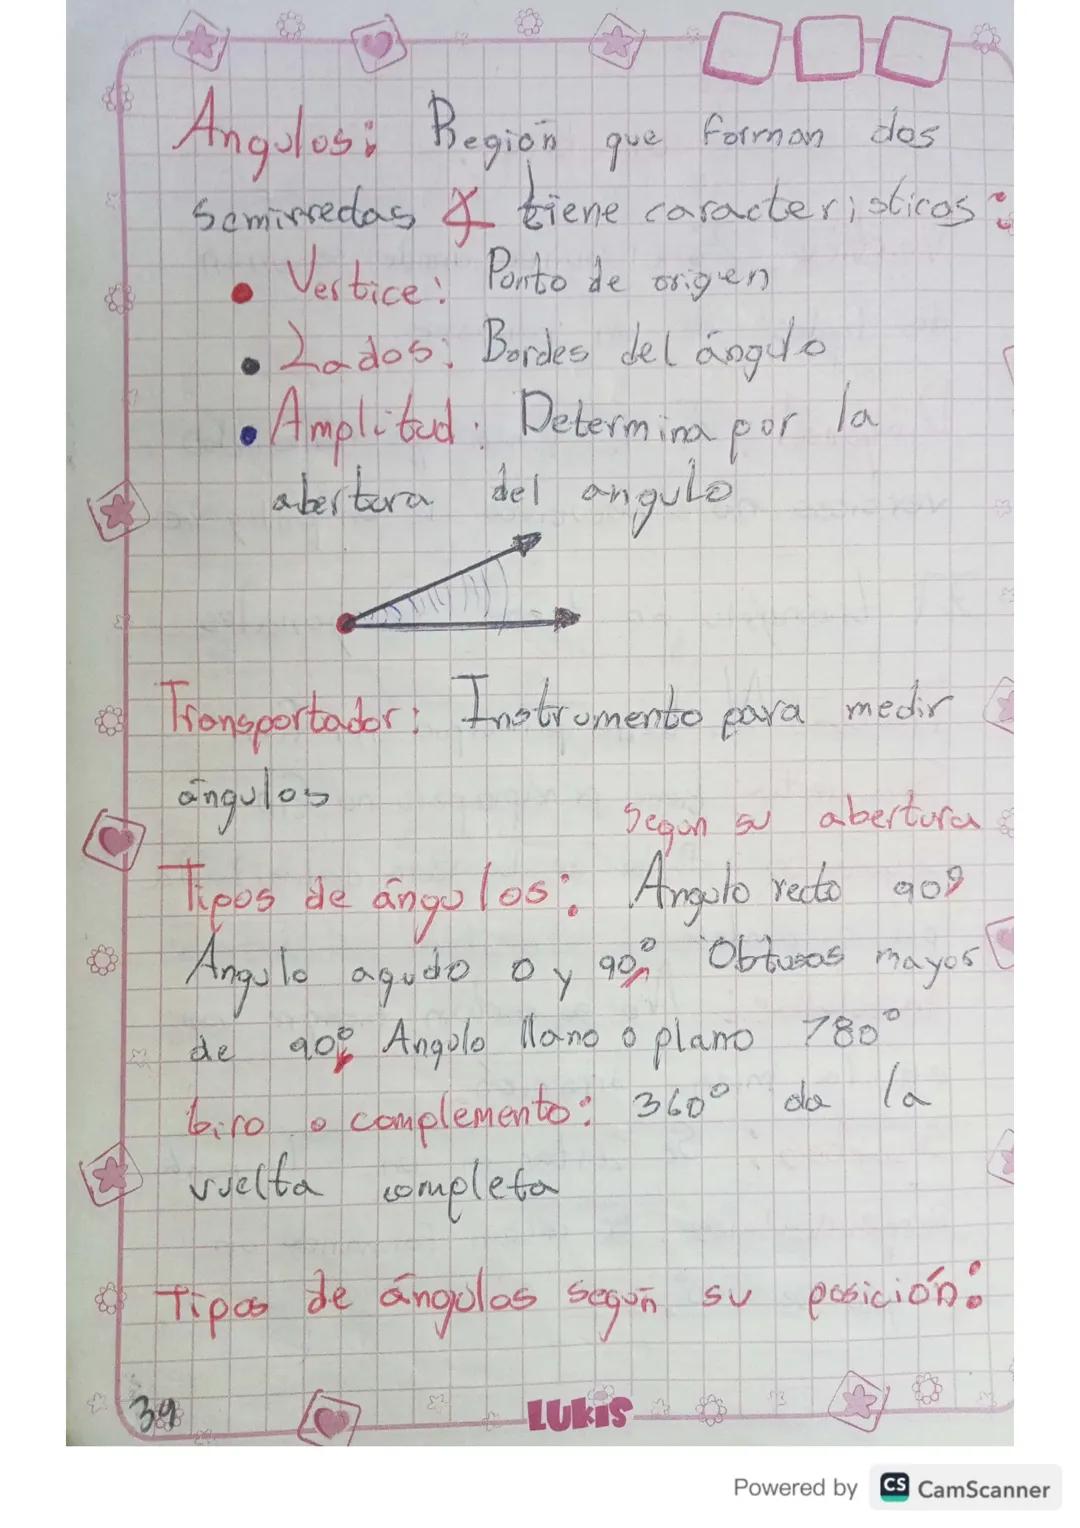 Angulos: Región que forman dos
semirredas ∡ tiene caracteristicas:
• Vertice: Ponto de origen
• Lados: Bordes del ángulo
• Amplitud: Determina por la
abertura del angulo
Transportador: Instrumento para medir
ángulos
Segun su abertura
Tipos de ángulos: Angulo recto 90º
Angulo agudo 0 y 90º, Obtusos mayos
de 90º, Angulo llano o plano 780º
biro o complemento: 360º da la
vuelta completa
Tipos de ángulos según su posición:
39
LUKIS
Powered by CS CamScanner